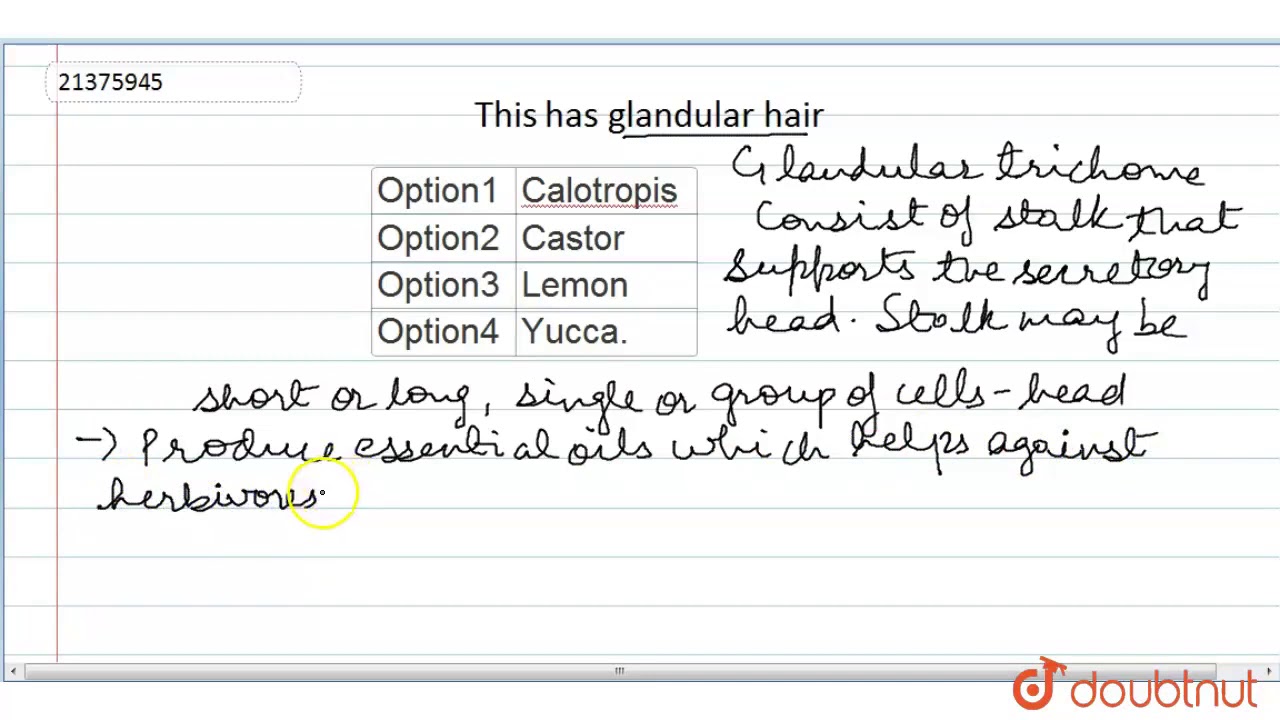 21375945
This has glandular hair
Option1 Calotropis
Option2 Castor
Option3 Lemon
Option4 Yucca.
Glandular trichome
consist of stalk that
supports the secretory
head. Stalk may be
short or long, single or group of cells - head
→ Produce essential oils which helps against
herbivores
doubtnut